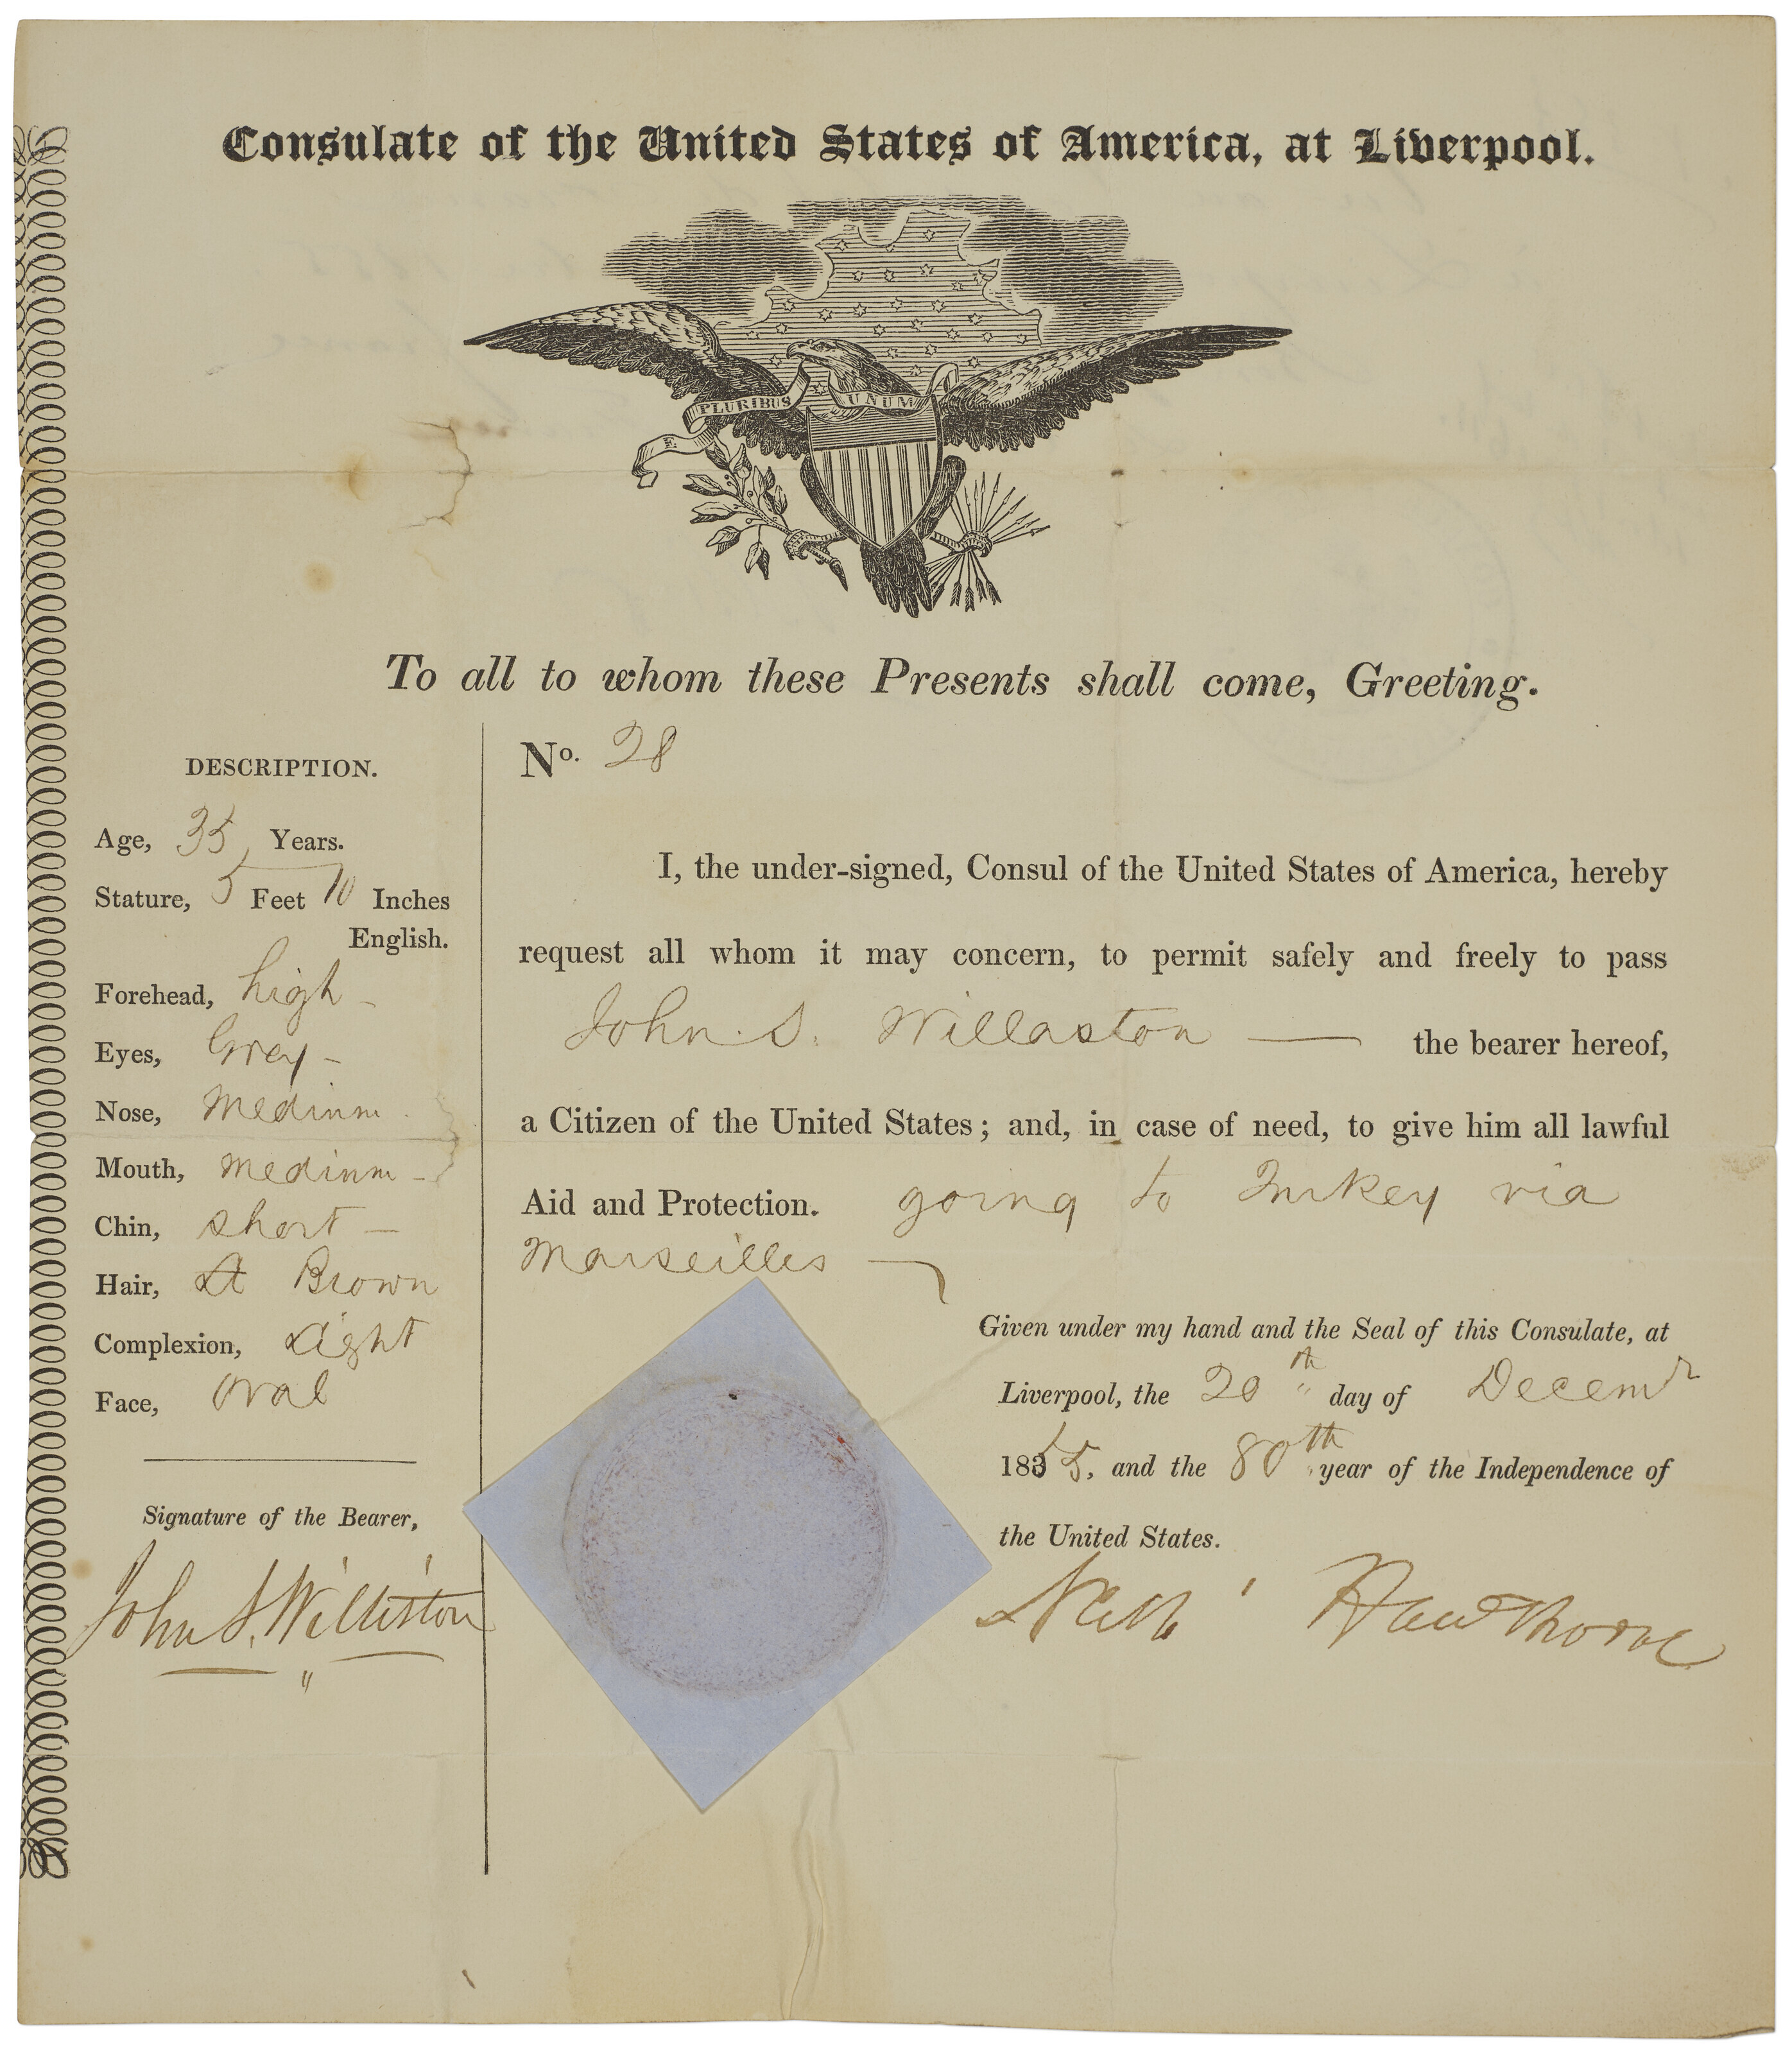 Consulate of the United States of America, at Liverpool.
E PLURIBUS UNUM
To all to whom these Presents shall come, Greeting.
DESCRIPTION.
Age, 35 Years.
Stature, 5 Feet 10 Inches
English.
Forehead, high -
Eyes, Grey -
Nose, Medium -
Mouth, Medium -
Chin, short -
Hair, Lt Brown
Complexion, Light
Face, Oval
Signature of the Bearer,
John S. Williston
No. 28
I, the under-signed, Consul of the United States of America, hereby
request all whom it may concern, to permit safely and freely to pass
John. S. Willaston — the bearer hereof,
a Citizen of the United States; and, in case of need, to give him all lawful
Aid and Protection. going to Turkey via
Marseilles —
Given under my hand and the Seal of this Consulate, at
Liverpool, the 20th day of Decemr
1855, and the 80th year of the Independence of
the United States.
Nathl Hawthorne